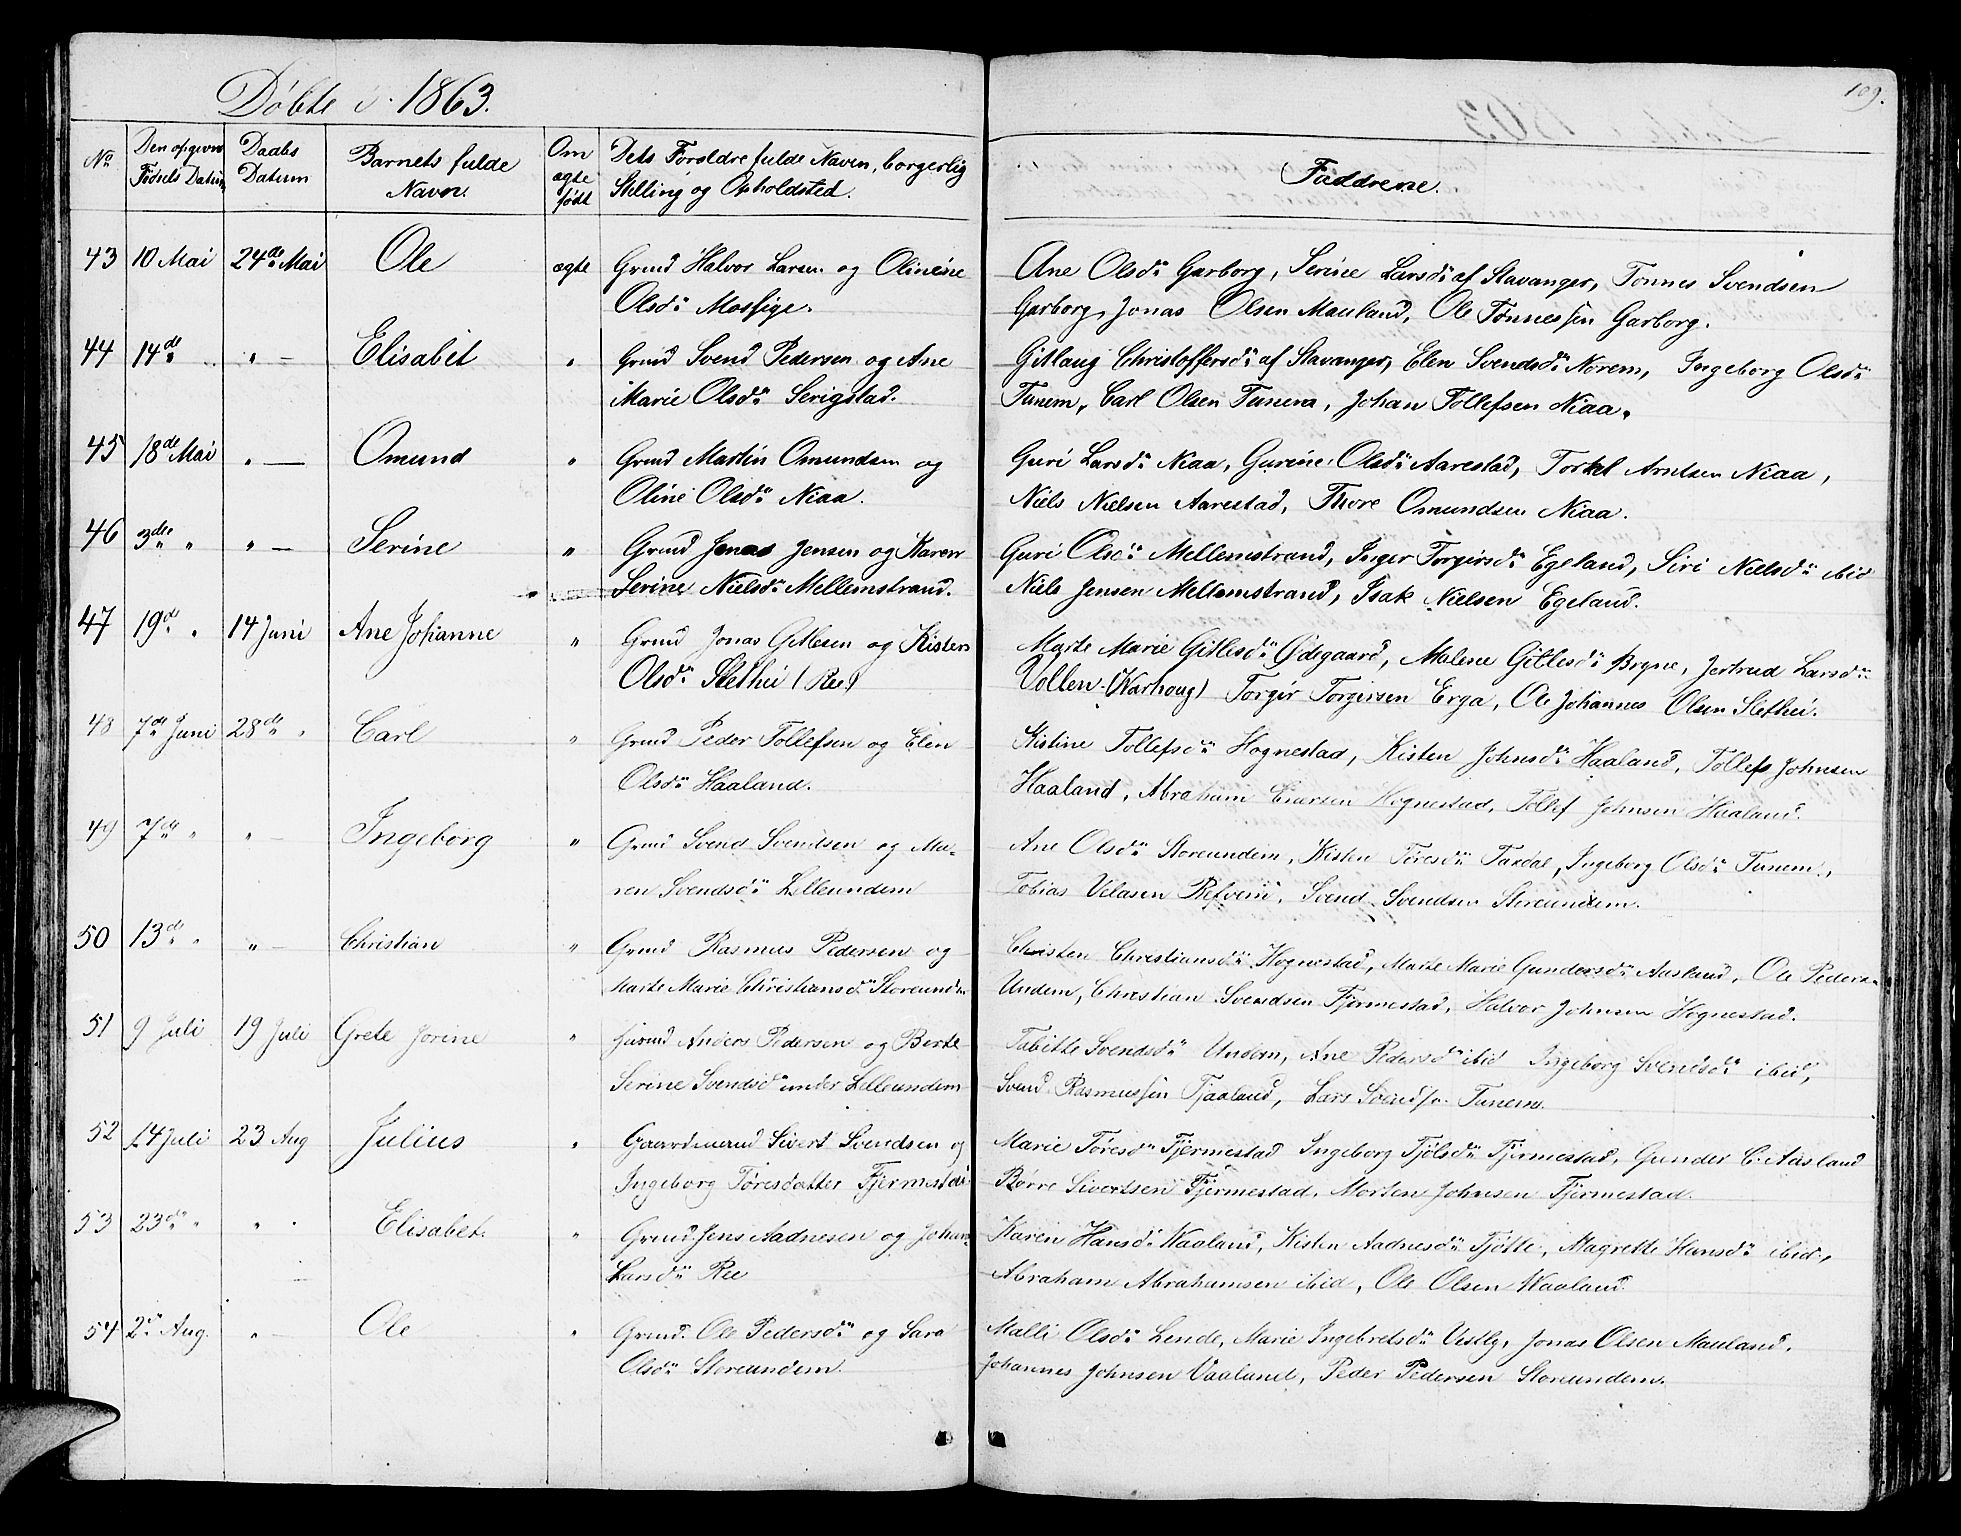 Døbte i 1863.
109.
No
Den opgivne Fødsels Datum
Daabs Datum
Barnets fulde Navn.
Om ægte født
Dets Forældre fulde Navn, borgerlig Stilling og Opholdsted.
Faddrene.
43 10 Mai 24de Mai Ole ægte Grmd Halvor Larsen og Olinene
Olsdr Mossige.
Ane Olsdr Garborg, Serine Larsdr af Stavanger, Tønnes Svendsen
Garborg, Jonas Olsen Mauland, Ole Tønnessen Garborg.
44 14de " " — Elisabet " Grmd Svend Pedersen og Ane
Marie Olsdr Serigstad.
Gitlaug Christoffersdr af Stavanger, Elen Svendsdr Norem, Ingeborg Olsdr
Tunem, Carl Olsen Tunem, Johan Tollefsen Niaa.
45 18de Mai " — Omund " Grmd Martin Omundsen og
Oline Olsdr Niaa.
Guri Larsdr Niaa, Gurine Olsdr Aarestad, Torkel Arntsen Niaa,
Niels Nielsen Aarestad, Thore Omundsen Niaa.
46 3die " " — Serine " Grmd Jonas Jensen og Karen
Serine Nielsdr Mellemstrand.
Guri Olsdr Mellemstrand, Inger Torgirsdr Egeland, Siri Nielsdr ibid
Niels Jensen Mellemstrand, Isak Nielsen Egeland.
47 19de " 14 Juni Ane Johanne " Grmd Jonas Gitlesen og Kisten
Olsdr Slethei (Ree)
Marte Marie Gitlesdr Ødegaard, Malene Gitlesdr Bryne, Jertrud Larsdr
Vollen (Varhoug) Torgir Torgirsen Erga, Ole Johannes Olsen Slethei.
48 7de Juni 28de " Carl " Grmd Peder Tollefsen og Elen
Olsdr Haaland.
Kistine Tollefsdr Hognestad, Kisten Johnsdr Haaland, Tollef Johnsen
Haaland, Abraham Einarsen Hognestad, Tollef Johnsen Haaland.
49 7de " " — Ingeborg " Grmd Svend Svendsen og Ma-
ren Svendsdr Lilleundem
Ane Olsdr Storeundem, Kisten Toresdr Taxdal, Ingeborg Olsdr Tunem,
Tobias Velasen Refveim, Svend Svendsen Storeundem.
50 13de " " — Christian " Grmd Rasmus Pedersen og
Marte Marie Christiansdr Storeundem
Christen Christiansdr Hognestad, Marte Marie Gundersdr Aasland, Ole Pedersen
Undem, Christian Svendsen Fjermestad, Halvor Johnsen Hognestad.
51 9 Juli 19 Juli Grete Jorine " Huusmd Anders Pedersen og Berte
Serine Svendsdr under Lilleundem
Tabitte Svendsdr Undem, Ane Pedersdr ibid Ingeborg Svendsdr ibid,
Svend Rasmussen Tjaaland, Lars Svendsen Tunem.
52 14 Juli 23 Aug Julius " Gaardmand Sivert Svendsen og
Ingeborg Tøresdatter Fjermestad
Marie Tøresdr Fjermestad Ingeborg Tjølsdr Fjermestad, Gunder C. Aasland
Børre Sivertsen Fjermestad, Morten Johnsen Fjermestad.
53 23de " " " Elisabet " Grmd Jens Aadnesen og Johan-
Larsdr Ree
Karen Hansdr Vaaland, Kisten Aadnesdr Tjøtte, Magrette Hansdr ibid,
Abraham Abrahamsen ibid, Ole Olsen Vaaland.
54 2de Aug. " — Ole " Grmd. Ole Pedersdr og Sara
Olsdr Storeundem.
Malli Olsdr Lende, Marie Ingebretsdr Vestly, Jonas Olsen Mauland.
Johannes Johnsen Vaaland, Peder Pedersen Storeundem.